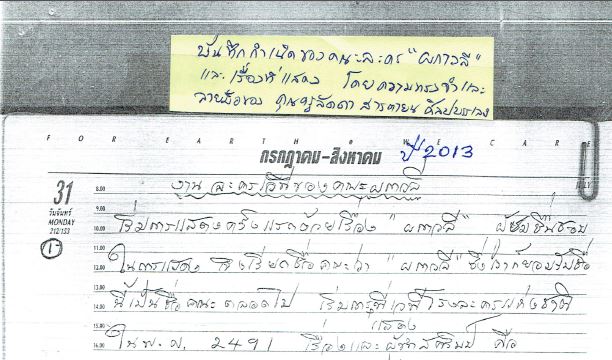 บันทึกกำเนิดของคณะละคร "ผกาวลี"
และ เรื่องที่แสดง โดยความทรงจำและ
ลายมือของ คุณครูลัดดา สารตายน ศิลปบรรเลง
FOR EARTH WE CARE
กรกฎาคม-สิงหาคม ปี 2013
JULY
31
วันจันทร์
MONDAY
212/153
1
8.00
งาน ละครเวทีของคณะผกาวลี
9.00
เริ่มการแสดงครั้งแรกด้วยเรื่อง "ผกาวลี" ผู้ชมชื่นชอบ
10.00
11.00
ในการแสดง จึงเรียกชื่อคณะว่า "ผกาวลี" ซึ่งเราก็ยอมรับชื่อ
12.00
13.00
นี้เป็นชื่อคณะตลอดไป เริ่มการแสดงที่เวทีโรงละครแห่งชาติ
14.00
15.00
ใน พ.ศ. 2491 เรื่องและผู้ คือ
16.00